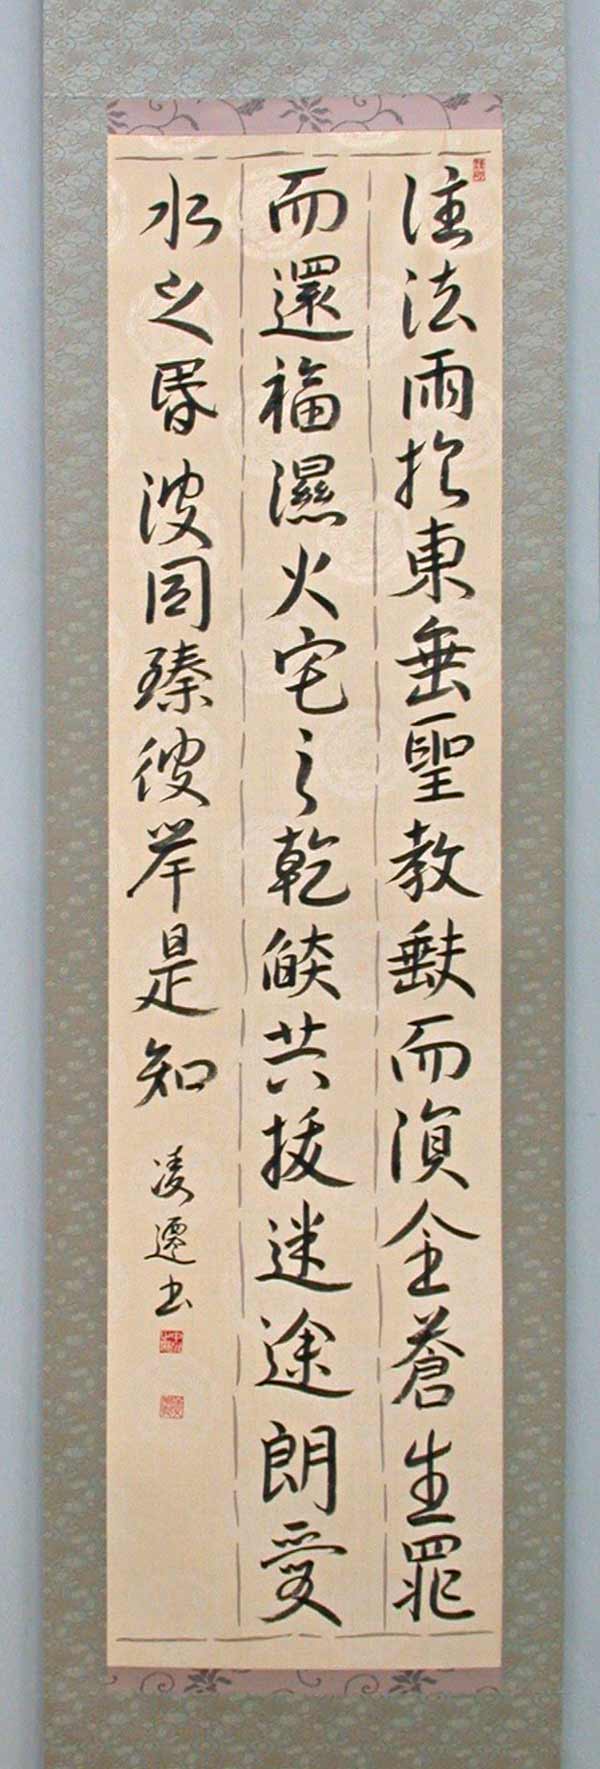 注法雨於東垂聖教缺而復全蒼生罪
而還福濕火宅之乾焰共拔迷途朗愛
水之昏波同臻彼岸是知
凌遷書